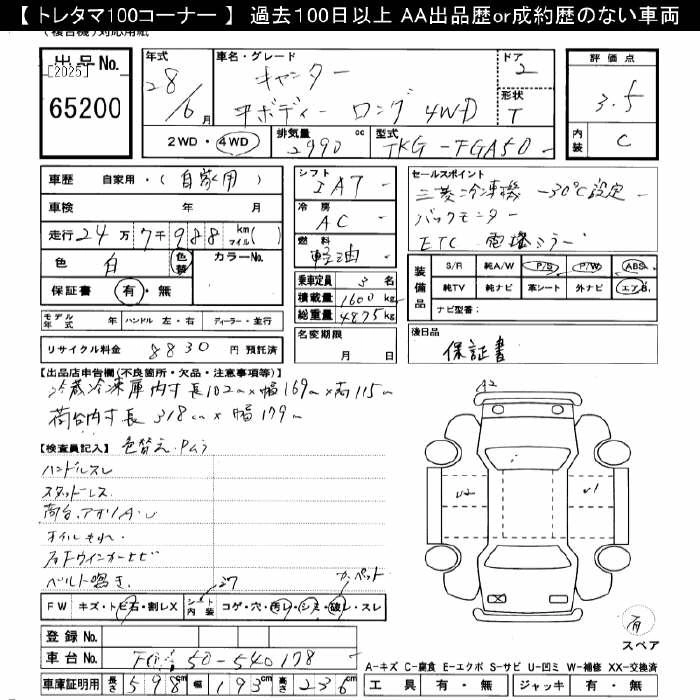 【 トレタマ100コーナー 】 過去100日以上 AA出品歴or成約歴のない車両
(複合機)対応用紙
出品No.
[2025]
65200
年式
28/6月
車名・グレード
キャンター
平ボディー ロング 4WD
ドア
2
形状
T
評価点
3.5
内装
C
2WD・4WD
排気量 2990 cc
型式 TKG-FGA50
車歴 自家用・(自家用)
車検 年 月
走行 24万7千988 km マイル( )
色 白 色替
カラーNo.
保証書 有・無
シフト IAT
冷房 AC
燃料 軽油
乗車定員 3名
積載量 1600kg
総重量 4875kg
セールスポイント
三菱冷凍機 -30℃設定
バックモニター
ETC 電格ミラー
装備品
S/R 純A/W P/S P/W ABS
純TV 純ナビ 革シート 外ナビ エアB
ナビ型番:
モデル年式 年 ハンドル 左・右 ディーラー・並行
リサイクル料金 8830 円 預託済
名変期限
月 日
後日品
保証書
【出品店申告欄(不良箇所・欠品・注意事項等)】
冷蔵冷凍庫内寸 長102cm×幅169cm×高115cm
荷台内寸 長318cm×幅179cm
【検査員記入】 色替え.Pムラ
ハンドルスレ
スタッドレス
荷台.アオリA.U
オイルもれ
ベルト鳴き.
A2
U2
U1
FW キズ・トビ石・割レX
シート内装 コゲ・穴・汚レ・シミ・破レ・スレ
カーペット
登録No.
車台No. FGA50-540178
車庫証明用 長さ598cm 幅193cm 高さ236cm
有
スペア
A-キズ C-腐食 E-エクボ S-サビ U-凹ミ W-補修 XX-交換済
工具 有・無 ジャッキ 有・無